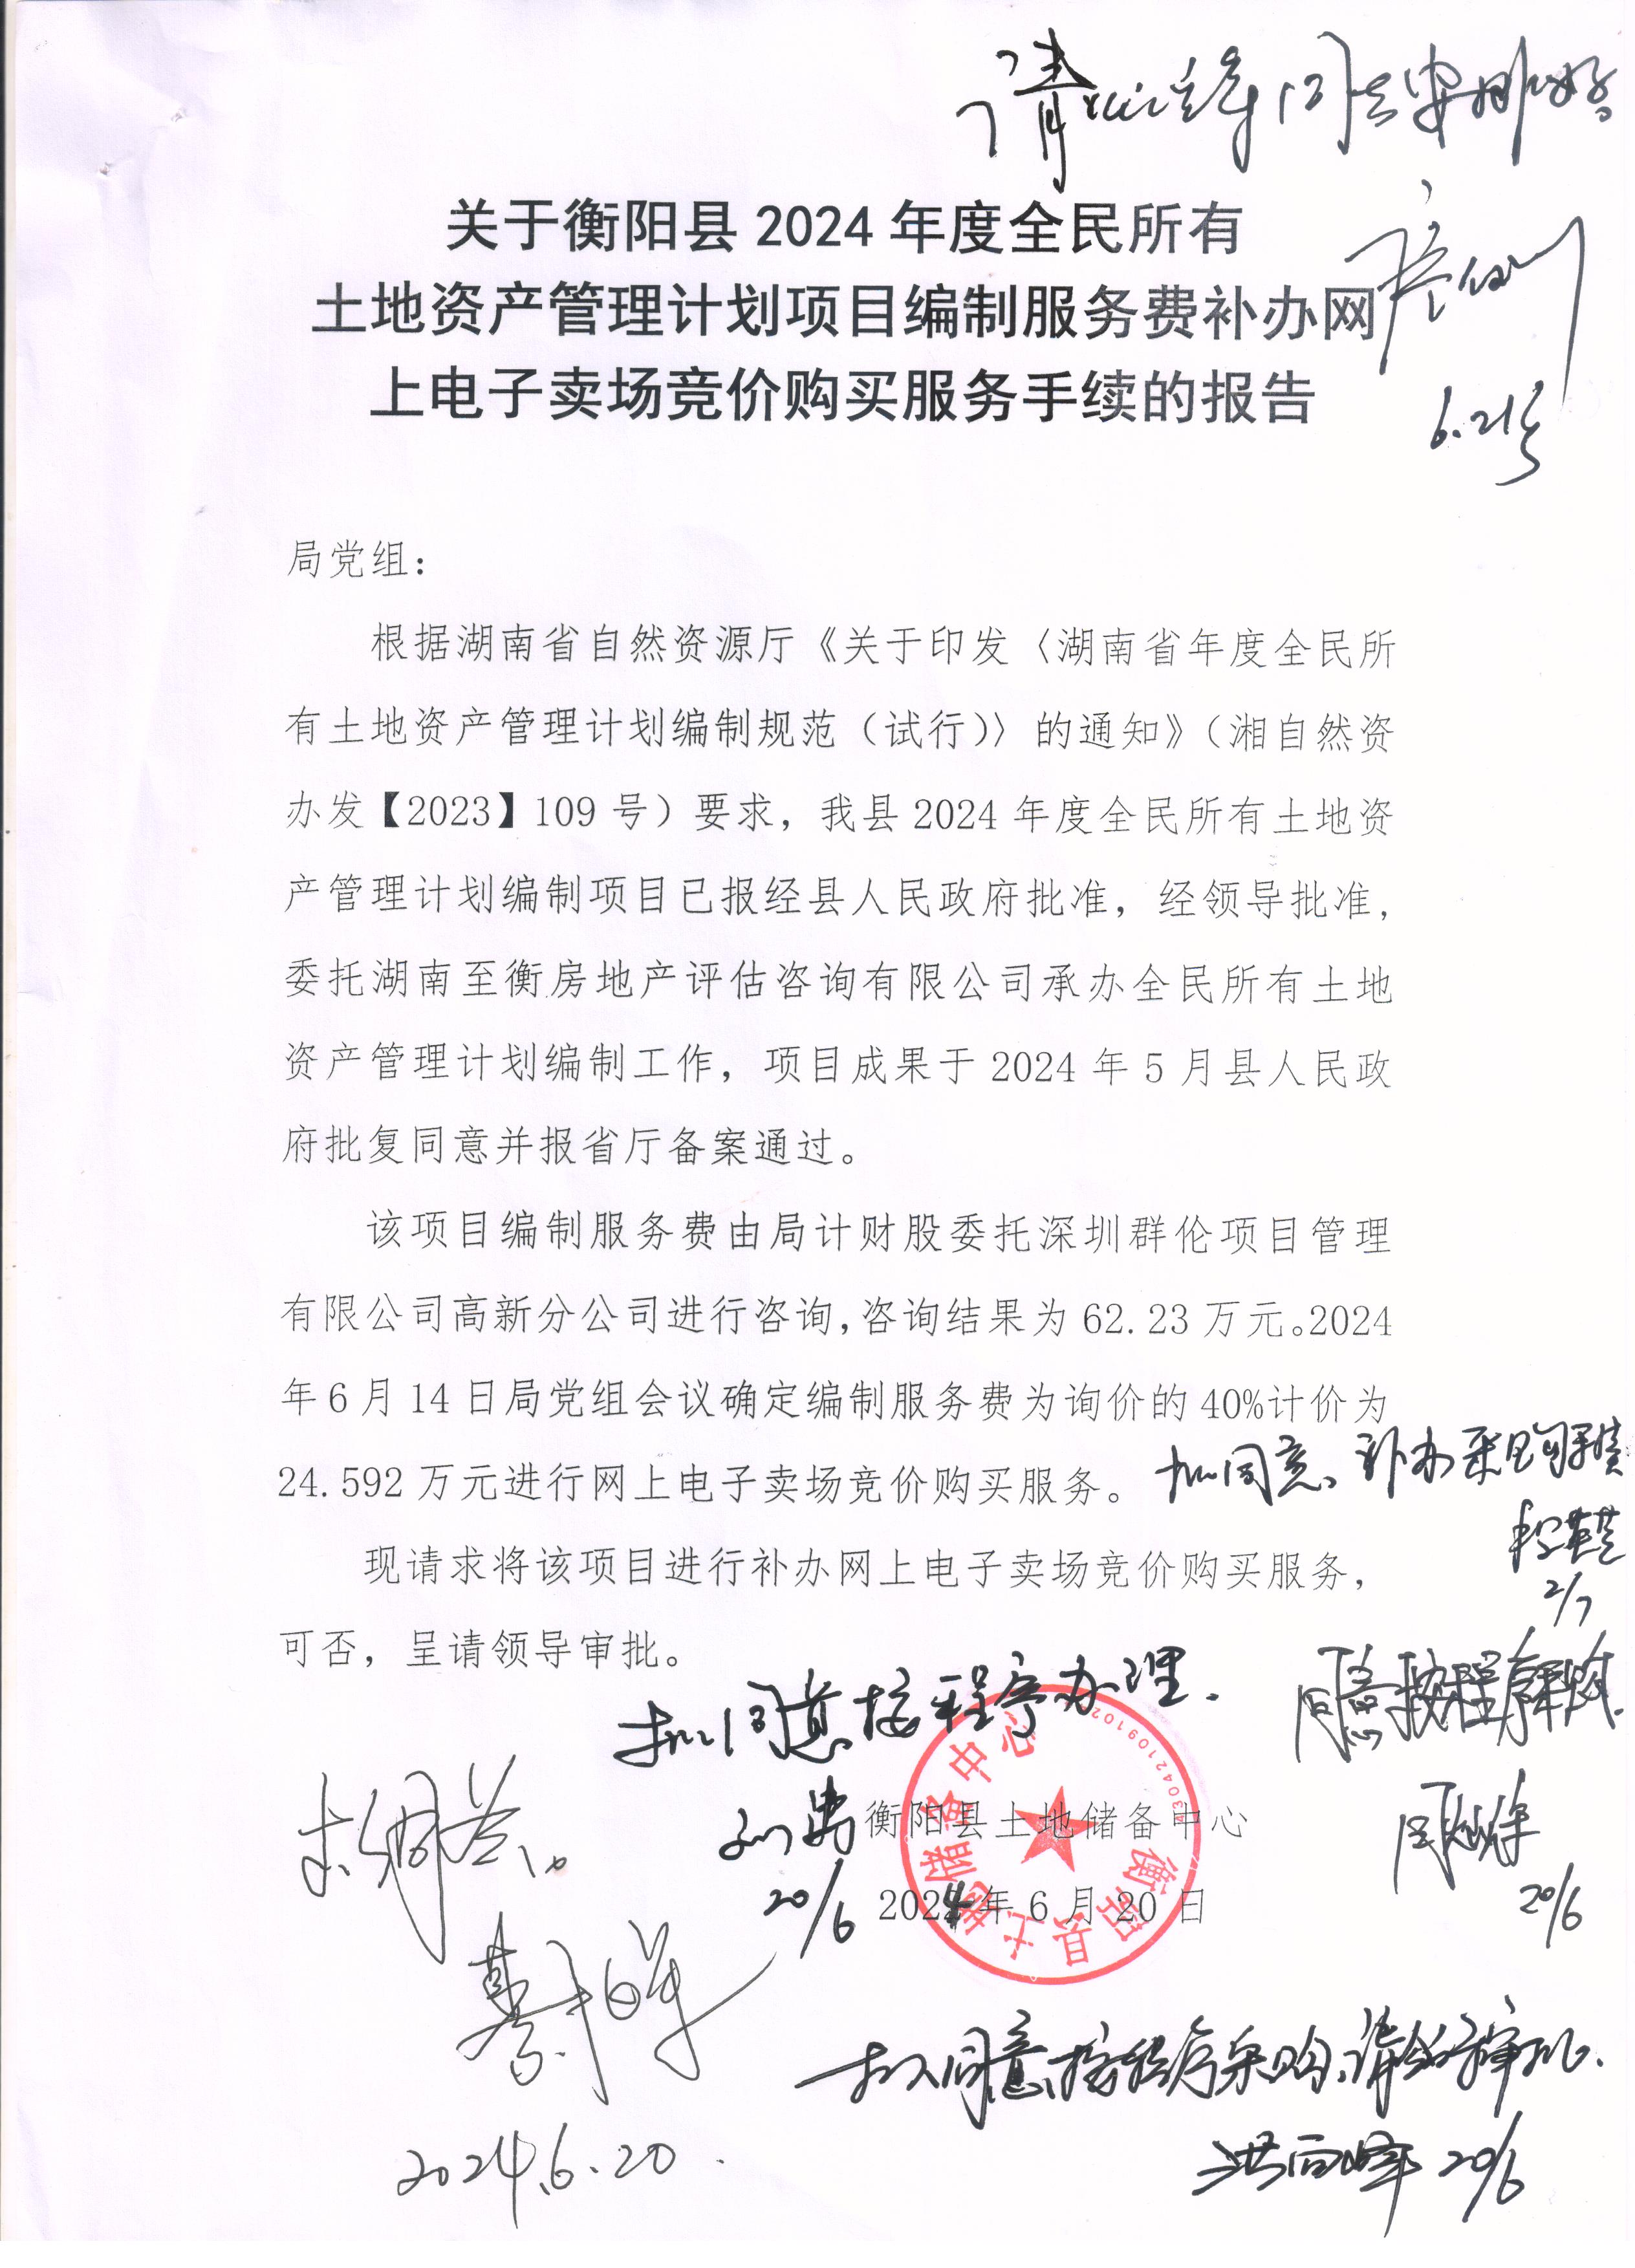 关于衡阳县 2024 年度全民所有
土地资产管理计划项目编制服务费补办网
上电子卖场竞价购买服务手续的报告
6.21
局党组：
根据湖南省自然资源厅《关于印发〈湖南省年度全民所
有土地资产管理计划编制规范（试行）〉的通知》（湘自然资
办发【2023】109 号）要求，我县 2024 年度全民所有土地资
产管理计划编制项目已报经县人民政府批准，经领导批准，
委托湖南至衡房地产评估咨询有限公司承办全民所有土地
资产管理计划编制工作，项目成果于 2024 年 5 月县人民政
府批复同意并报省厅备案通过。
该项目编制服务费由局计财股委托深圳群伦项目管理
有限公司高新分公司进行咨询,咨询结果为 62.23 万元。2024
年 6 月 14 日局党组会议确定编制服务费为询价的 40%计价为
24.592 万元进行网上电子卖场竞价购买服务。
拟同意补办采购手续
2/7
现请求将该项目进行补办网上电子卖场竞价购买服务，
可否，呈请领导审批。
拟同意按程序办理.
同意按程序采购.
衡阳县土地储备中心
20/6
2024年 6 月 20 日
20/6
衡阳县土地储备中心
拟同意按程序采购,请审批.
2024.6.20.
20/6